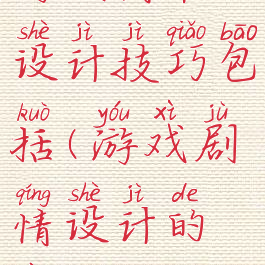 shè jì jì qiǎo bāo
设计技巧包
kuò yóu xì jù
括(游戏剧
qíng shè jì de
情设计的